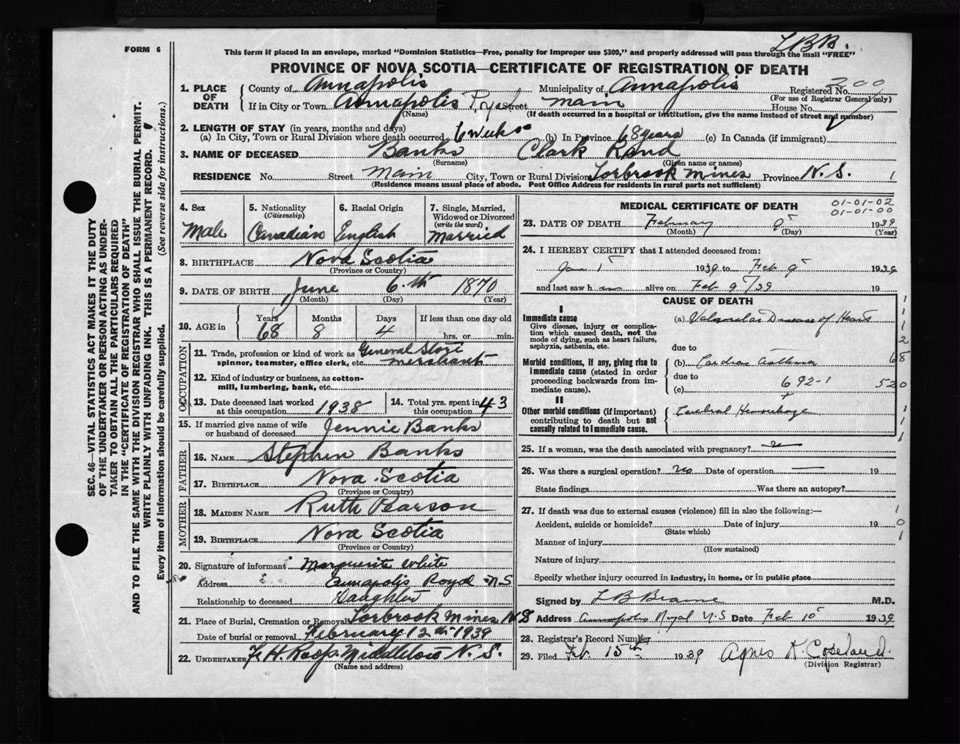 L.B.B.
FORM 6
This form if placed in an envelope, marked "Dominion Statistics—Free, penalty for improper use $300," and properly addressed will pass through the mail "FREE"
PROVINCE OF NOVA SCOTIA—CERTIFICATE OF REGISTRATION OF DEATH
1. PLACE OF DEATH County of Annapolis Municipality of Annapolis Registered No. 200
(For use of Registrar General only)
If in City or Town Annapolis Royal Street Main House No.
(Name) (If death occurred in a hospital or institution, give the name instead of street and number)
2. LENGTH OF STAY (in years, months and days)
(a) In City, Town or Rural Division where death occurred 6 weeks (b) In Province 68 years (c) In Canada (if immigrant)
3. NAME OF DECEASED Banks Clark Rand
(Surname) (Given name or names)
RESIDENCE No. Street Main City, Town or Rural Division Torbrook Mines Province N.S.
(Residence means usual place of abode. Post Office Address for residents in rural parts not sufficient)
4. Sex 5. Nationality (Citizenship) 6. Racial Origin 7. Single, Married, Widowed or Divorced (write the word)
Male Canadian English Married
8. BIRTHPLACE Nova Scotia
(Province or Country)
9. DATE OF BIRTH June 6th 1870
(Month) (Day) (Year)
10. AGE in Years Months Days If less than one day old
68 8 4 hrs. or min.
OCCUPATION
11. Trade, profession or kind of work as spinner, teamster, office clerk, etc. General Store Merchant
12. Kind of industry or business, as cotton-mill, lumbering, bank, etc.
13. Date deceased last worked at this occupation 1938 14. Total yrs. spent in this occupation 43
15. If married give name of wife or husband of deceased Jennie Banks
FATHER
16. NAME Stephen Banks
17. BIRTHPLACE Nova Scotia
(Province or Country)
MOTHER
18. MAIDEN NAME Ruth Pearson
19. BIRTHPLACE Nova Scotia
(Province or Country)
20. Signature of informant Marguerite White
Address Annapolis Royal N.S
Relationship to deceased Daughter
21. Place of Burial, Cremation or Removal Torbrook Mines N.S
Date of burial or removal February 12th 1939
22. UNDERTAKER F. H. Middleton N.S.
(Name and address)
MEDICAL CERTIFICATE OF DEATH
01-01-02
01-01-00
23. DATE OF DEATH February 9 1939
(Month) (Day) (Year)
24. I HEREBY CERTIFY that I attended deceased from:
Jan 1 1939 to Feb 9 1939
and last saw h im alive on Feb 9/39 19
CAUSE OF DEATH
I
Immediate cause (a) Valvular Disease of Heart
Give disease, injury or complication which caused death, not the mode of dying, such as heart failure, asphyxia, asthenia, etc.
due to
Morbid conditions, if any, giving rise to immediate cause (stated in order proceeding backwards from immediate cause).
(b) Cardiac Asthma
due to
(c) 692-1
520
68
II
Other morbid conditions (if important) contributing to death but not causally related to immediate cause.
Cerebral Hemorrhage
25. If a woman, was the death associated with pregnancy?
26. Was there a surgical operation? No Date of operation — 19
State findings Was there an autopsy?
27. If death was due to external causes (violence) fill in also the following:—
Accident, suicide or homicide? Date of injury 19
(State which)
Manner of injury
(How sustained)
Nature of injury
Specify whether injury occurred in industry, in home, or in public place
Signed by L B Braine M.D.
Address Annapolis Royal N-S Date Feb 10 1939
28. Registrar's Record Number
29. Filed Feb. 15th 1939 Agnes K. Copeland
(Division Registrar)
SEC. 46—VITAL STATISTICS ACT MAKES IT THE DUTY OF THE UNDERTAKER OR PERSON ACTING AS UNDERTAKER TO OBTAIN ALL THE PARTICULARS REQUIRED IN THE "CERTIFICATE OF REGISTRATION OF DEATH" AND TO FILE THE SAME WITH THE DIVISION REGISTRAR WHO SHALL ISSUE THE BURIAL PERMIT.
WRITE PLAINLY WITH UNFADING INK. THIS IS A PERMANENT RECORD.
Every item of information should be carefully supplied. (See reverse side for instructions.)